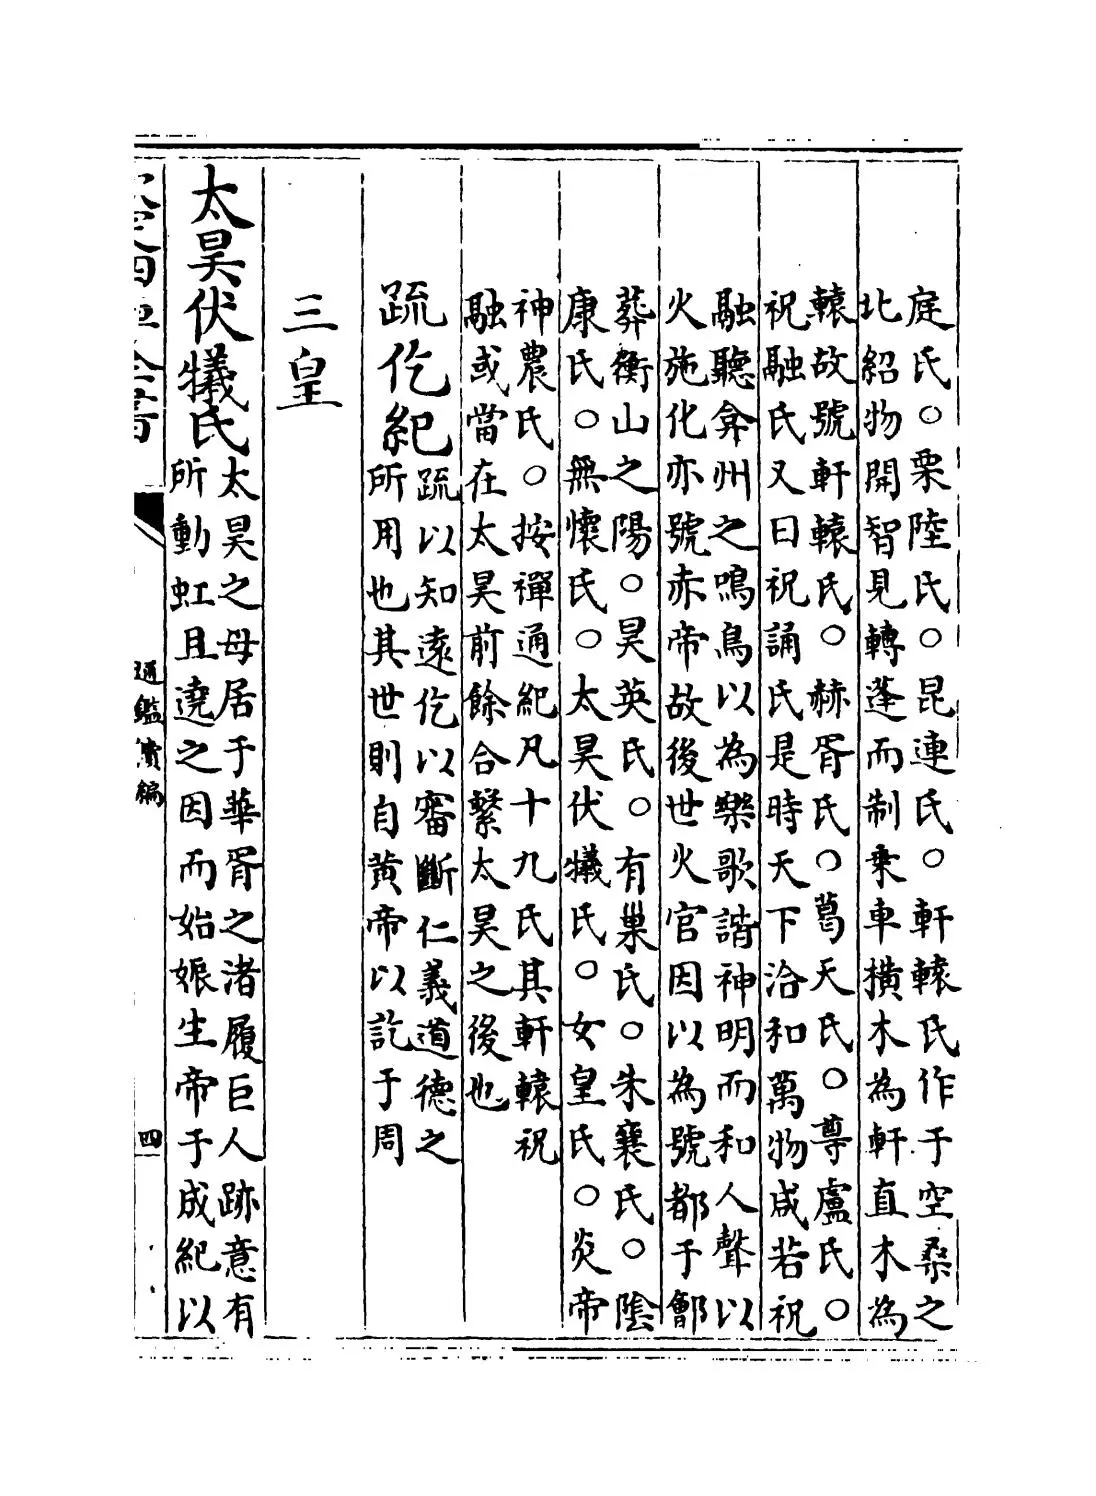 庭氏○栗陸氏○昆連氏○軒轅氏作于空桑之
北紹物開智見轉蓬而制乗車橫木為軒直木為
轅故號軒轅氏○赫胥氏○葛天氏○尊盧氏○
祝融氏又曰祝誦氏是時天下洽和萬物咸若祝
融聽弇州之鳴鳥以為樂歌諧神明而和人聲以
火施化亦號赤帝故後世火官因以為號都于鄶
葬衡山之陽○昊英氏○有巢氏○朱襄氏○陰
康氏○無懷氏○太昊伏犧氏○女皇氏○炎帝
神農氏○按禪通紀凡十九氏其軒轅祝
融或當在太昊前餘合繫太昊之後也
疏仡紀
疏以知遠仡以審斷仁義道德之
所用也其世則自黄帝以訖于周
三皇
太昊伏犧氏
太昊之母居于華胥之渚履巨人跡意有
所動虹且遶之因而始娠生帝于成紀以
通鑑續編
四